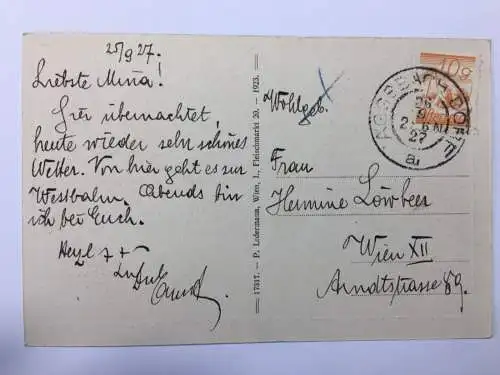 25/9 27.
Liebste Mina!
Hier übernachtet,
heute wieder sehr schönes
Wetter. Von hier geht es zur
Westbahn. Abends bin
ich bei Euch.
17317. – P. Ledermann, Wien, I., Fleischmarkt 20. – 1923.
Wohlgeb.
Frau
Hermine Löwbeer
Wien XII
Arndtstrasse 89.
AGGSBACH-DORF
10g